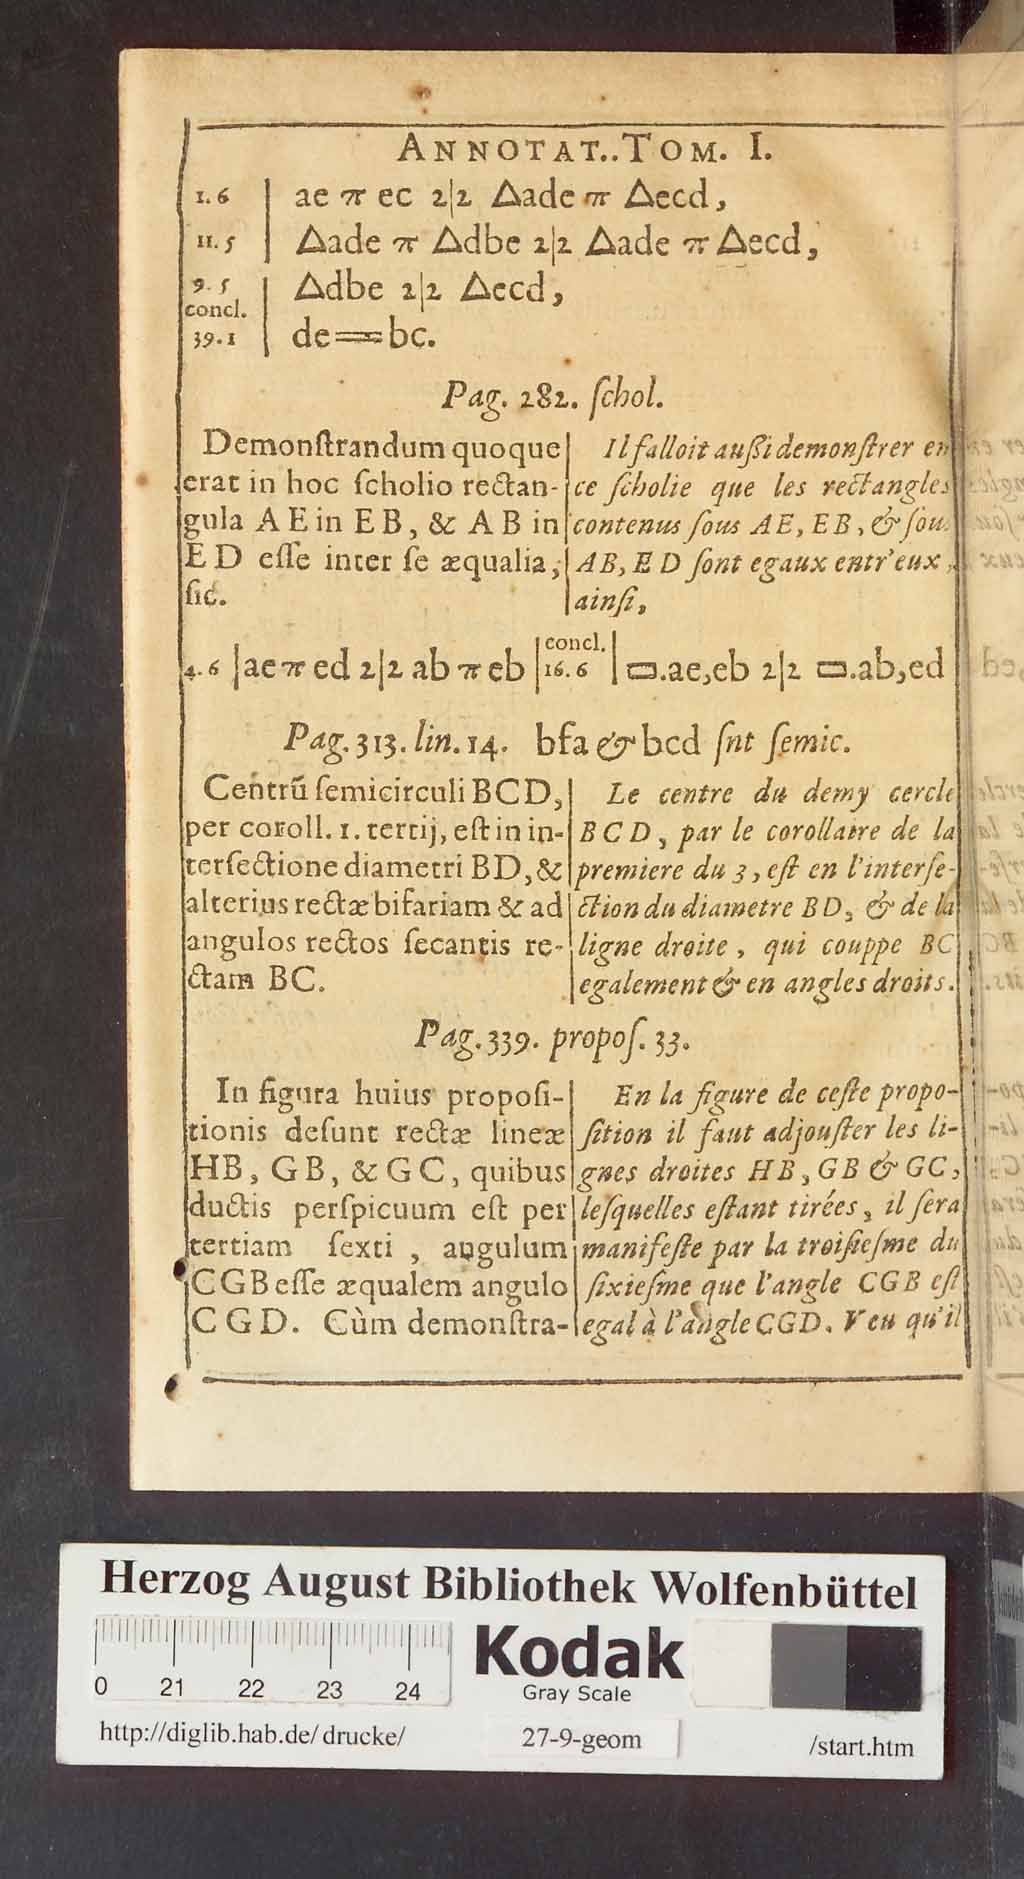 ANNOTAT..TOM. I.
1.6 | ae π ec 2|2 △ade π △ecd,
11.5 | △ade π △dbe 2|2 △ade π △ecd,
9.5 | △dbe 2|2 △ecd,
concl.
39.1 | de==bc.
Pag. 282. ſchol.
Demonſtrandum quoque
erat in hoc ſcholio rectan-
gula A E in E B, & A B in
E D eſſe inter ſe æqualia,
ſic.
Il falloit auſſi demonſtrer en
ce ſcholie que les rectangles
contenus ſous AE, EB, & ſous
AB, E D ſont egaux entr'eux,
ainſi,
4.6 | ae π ed 2|2 ab π eb | concl. 16.6 | ▭.ae,eb 2|2 ▭.ab,ed
Pag. 313. lin. 14. bfa & bcd ſnt ſemic.
Centrū ſemicirculi BCD,
per coroll. 1. tertij, eſt in in-
terſectione diametri BD, &
alterius rectæ bifariam & ad
angulos rectos ſecantis re-
ctam BC.
Le centre du demy cercle
B C D, par le corollaire de la
premiere du 3, eſt en l'interſe-
ction du diametre BD, & de la
ligne droite, qui couppe BC
egalement & en angles droits.
Pag. 339. propoſ. 33.
In figura huius propoſi-
tionis deſunt rectæ lineæ
HB, GB, & GC, quibus
ductis perſpicuum eſt per
tertiam ſexti, angulum
CGB eſſe æqualem angulo
C G D. Cùm demonſtra-
En la figure de ceſte propo-
ſition il faut adjouſter les li-
gnes droites HB, GB & GC,
leſquelles eſtant tirées, il ſera
manifeſte par la troiſieſme du
ſixieſme que l'angle CGB eſt
egal à l'angle CGD. Veu qu'il
Herzog August Bibliothek Wolfenbüttel
0 21 22 23 24
Kodak
Gray Scale
http://diglib.hab.de/drucke/ 27-9-geom /start.htm